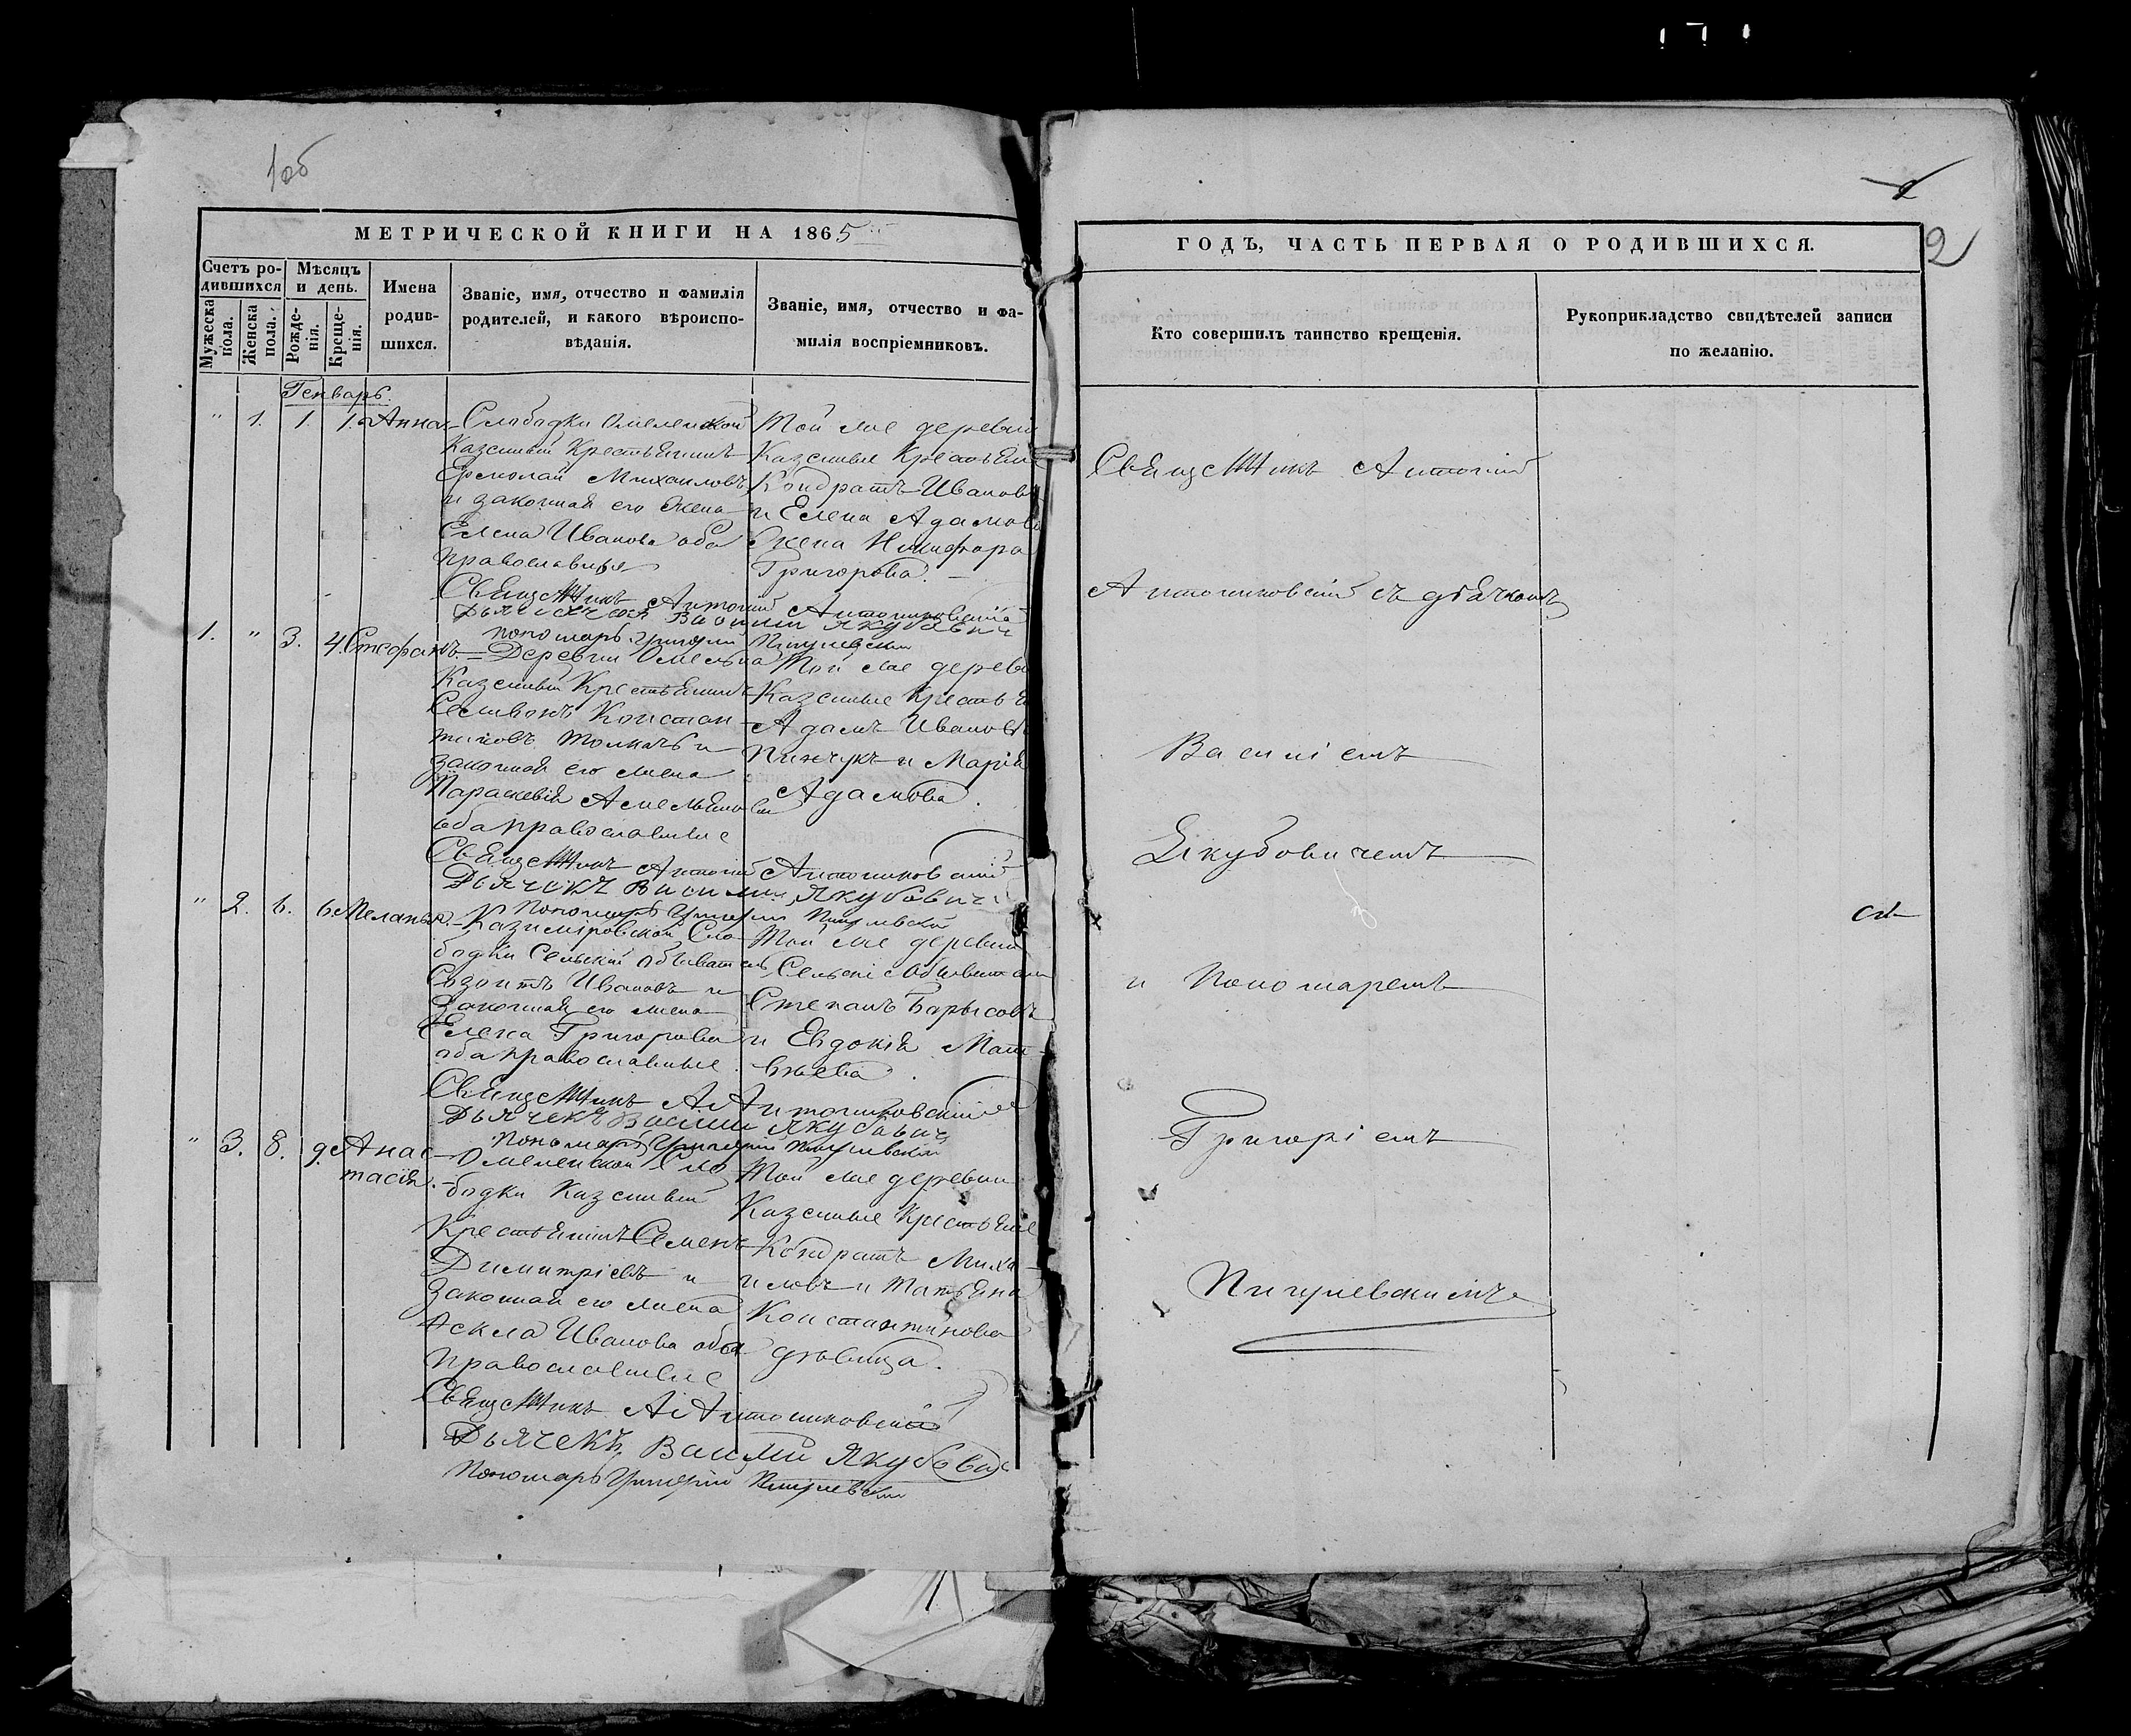 1об
2
МЕТРИЧЕСКОЙ КНИГИ НА 1865
Счетъ ро-
дившихся
Мѣсяцъ
и день.
Мужеска
пола.
Женска
пола.
Рожде-
нія.
Креще-
нія.
Имена
родив-
шихся.
Званіе, имя, отчество и фамилія
родителей, и какого вѣроиспо-
вѣданія.
Званіе, имя, отчество и фа-
милія воспріемниковъ.
Генварь.
" 1. 1. 1. Анна
Слободки Омеленской
Казенный Крестьянинъ
Ермолай Михаиловъ
и законная его жена
Елена Иванова оба
православныя
Той же деревни
Казенные Крестьяне
Кондратъ Ивановъ
и Елена Адамова
жена Никифора
Григорова.
Священникъ Антоній Антониковскій
Дьячекъ Василій Якубовичь
Пономарь Григорій
1. " 3. 4. Стефанъ.
Деревни Омельна
Казенный Крестьянинъ
Селивонъ Констан-
тиновъ Толкачь и
законная его жена
Параскевія Амельянова
оба православные
Той же деревни
Казенные Крестья
Адамъ Ивановъ
Пинчукъ и Марія
Адамова.
Священникъ Антоній Антониковскій
Дьячекъ Василий Якубовичь
Пономарь Григорій
" 2. 6. 6. Меланья.
Казиміровской Сло-
бодки Сельскій обыватель
Созонтъ Ивановъ и
законная его жена
Елена Григорова
оба православные.
Той же деревни
Сельскіе Обыватели
Степанъ Барысовъ
и Евдокія Мат-
вѣева.
Священникъ А Антониковскій
Дьячекъ Василии Якубовичь
Пономарь Григорій
" 3. 8. 9. Анас-
тасія.
Омеленской Сло-
бодки Казенный
Крестьянинъ Семенъ
Димитріевъ и
законная его жена
Фекла Иванова оба
православные
Той же деревни
Казенные Крестьяне
Кондратъ Миха-
иловъ и Татьяна
Константинова
дѣвица.
Священникъ А Антониковскій
Дьячекъ Василий Якубовичь
Пономарь Григорій
2
ГОДЪ, ЧАСТЬ ПЕРВАЯ О РОДИВШИХСЯ.
Кто совершилъ таинство крещенія.
Рукоприкладство свидѣтелей записи
по желанію.
Священникъ Антоній
Антониковскій съ дьячкомъ
Василіемъ
Якубовичемъ
и Пономаремъ
Григоріемъ